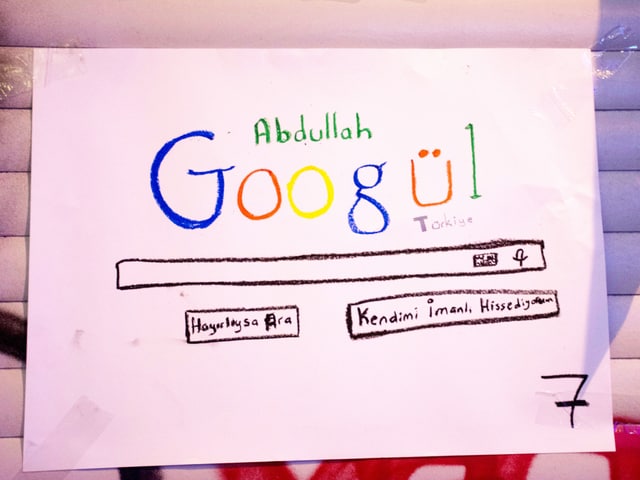 Abdullah
Googül
Türkiye
Hayırlıysa Ara
Kendimi İmanlı Hissediyorum
7